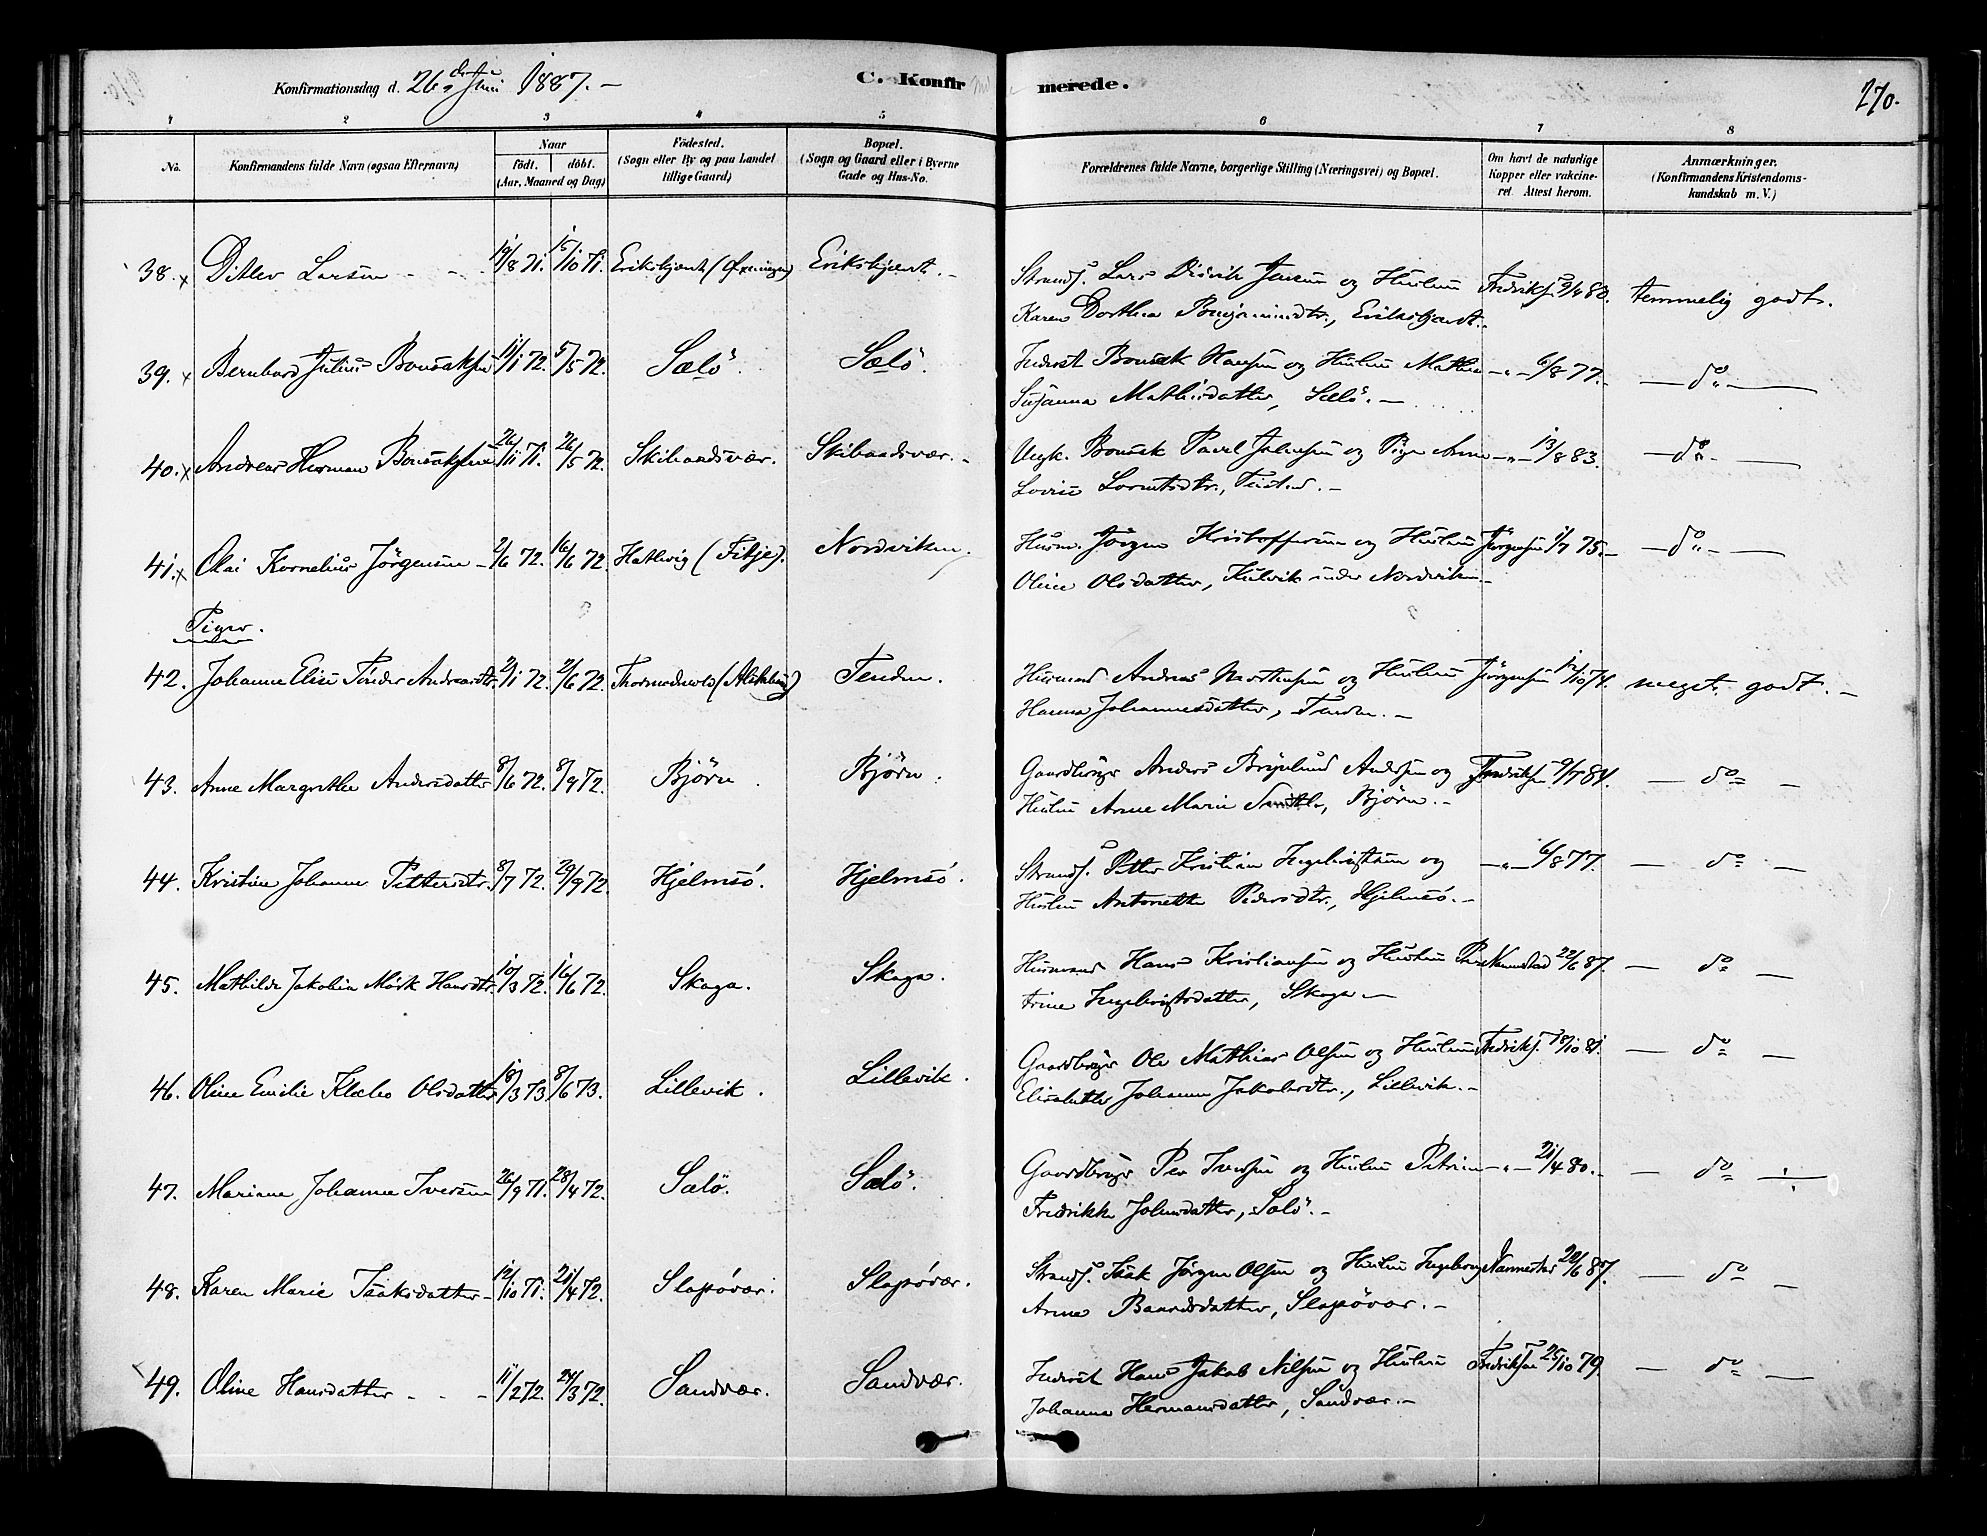 Konfirmationsdag d. 26de Juni 1887. –
C. Konfirmerede.
270.
1 2 3 4 5 6 7 8
No. Konfirmandens fulde Navn (ogsaa Efternavn) Naar födt. döbt. (Aar, Maaned og Dag) Födested. (Sogn eller By og paa Landet tillige Gaard) Bopæl. (Sogn og Gaard eller i Byerne Gade og Hus-No. Forældrenes fulde Navne, borgerlige Stilling (Næringsvei) og Bopæl. Om havt de naturlige Kopper eller vakcineret. Attest herom. Anmærkninger. (Konfirmandens Kristendomskundskab m. V.)
38. x Ditlev Larsen - - 19/8 71. 15/10 71. Erikshjemt Erikshjemt. – Strands. Lars Jensen og Hustru Fredriks. 5/4 80. temmelig godt.
Karen Dorthea Benjaminsdtr.,
39. x Bernhard Julius Bonsaksen 11/1 72. 5/5 72. Sælö. Sælö. Inderst Bonsak Hansen og Hustru Mathea –„– 6/8 77. – – do – 
Susanna Mathisdatter, Sælö. –
40. x Andreas Herman Bonsaksen 26/11 71. 26/5 72. Skibaadsvær. Skibaadsvær. – Ungk. Bonsak Pavel Johnsen og Pige Anne –„– 13/8 83. – do –
Lovise Lorntsdtr., –
41. x Olai Kornelius Jörgensen – 2/6 72. 16/6 72. Hatlevig (Tilje). Nordviken. Husm. Jörgen Kristoffersen og Hustru Jörgensen 1/7 75. – – do –
Oline Olsdatter, Kulvik under Nordviken –
Piger.
42. Johanne Elise Tönder Andreasdtr. 2/1 72. 2/6 72. Tenden. Husmand Andreas Mortensen og Hustru Jörgensen 12/10 74. meget godt. –
Hanna Johannesdatter, Tenden. –
43. Anne Margrethe Andersdatter 8/6 72. 8/9 72. Björn. Björn. Gaardbruger Anders Brynlund Andersen og Fredriksen 9/7 84. – do –
Hustru Anne Marie Björn. –
44. Kristine Johanne Pettersdtr. 8/7 72. 29/9 72. Hjelmsö. Hjelmsö. Strands. Petter Kristian Ingebrigtsen og –„– 6/8 77. – do –
Hustru Antonette Pedersdtr., Hjelmsö. –
45. Mathilde Jakobine Mörk Hansdtr. 10/3 72. 16/6 72. Skaga. Skaga. Husmand Hans Kristiansen og Hustru Nannestad 22/6 87. – do –
Ingebrigtsdatter, Skaga –
46. Oline Emilie Klæbo Olsdatter 18/3 73. 8/6 73. Lillevik. Lillevik. Gaardbruger Ole Mathias Olsen og Hustru Fredriks. 18/10 81. – do –
Elisabeth Johanna Jakobsdtr., Lillevik. –
47. Mariane Johanne Iversen 26/9 71. 28/4 72. Sælö. Sælö. Gaardbruger Per Iversen og Hustru Petrine –„– 21/4 80. – – do –
Fredrikke Johnsdatter, Sælö. –
48. Karen Marie Isaksdatter – 12/10 71. 21/4 72. Slapövær. Slapövær. Strands. Isak Jörgen Olsen og Hustru Ingeborg Nannestad 22/6 87. – do –
Anna Baardsdatter, Slapövær. –
49. Oline Hansdatter - - - 11/2 72. 24/3 72. Sandvær. Sandvær. Inderst Hans Jakob Nilsen og Hustru Fredriksen 25/10 79. – do –
Johanna Hermansdatter, Sandvær. –